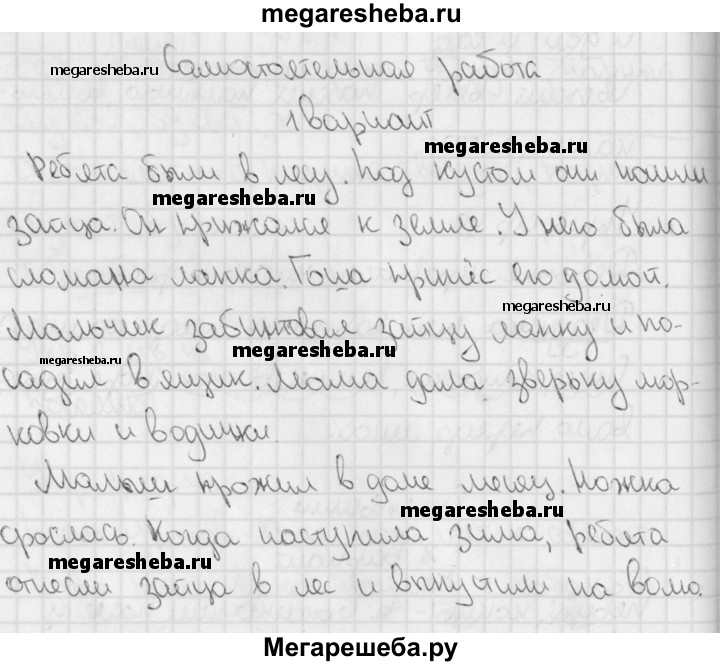 megaresheba.ru
megaresheba.ru Самостоятельная работа
1 вариант
megaresheba.ru
Ребята были в лесу. Под кустом они нашли
megaresheba.ru
зайца. Он прижался к земле. У него была
сломана лапка. Гоша принёс его домой.
megaresheba.ru
Мальчик забинтовал зайцу лапку и по-
megaresheba.ru megaresheba.ru
садил в ящик. Мама дала зверьку мор-
ковки и водички.
Малыш прожил в доме месяц. Ножка
megaresheba.ru
срослась. Когда наступила зима, ребята
megaresheba.ru
отнесли зайца в лес и выпустили на волю.
Мегарешеба.ру